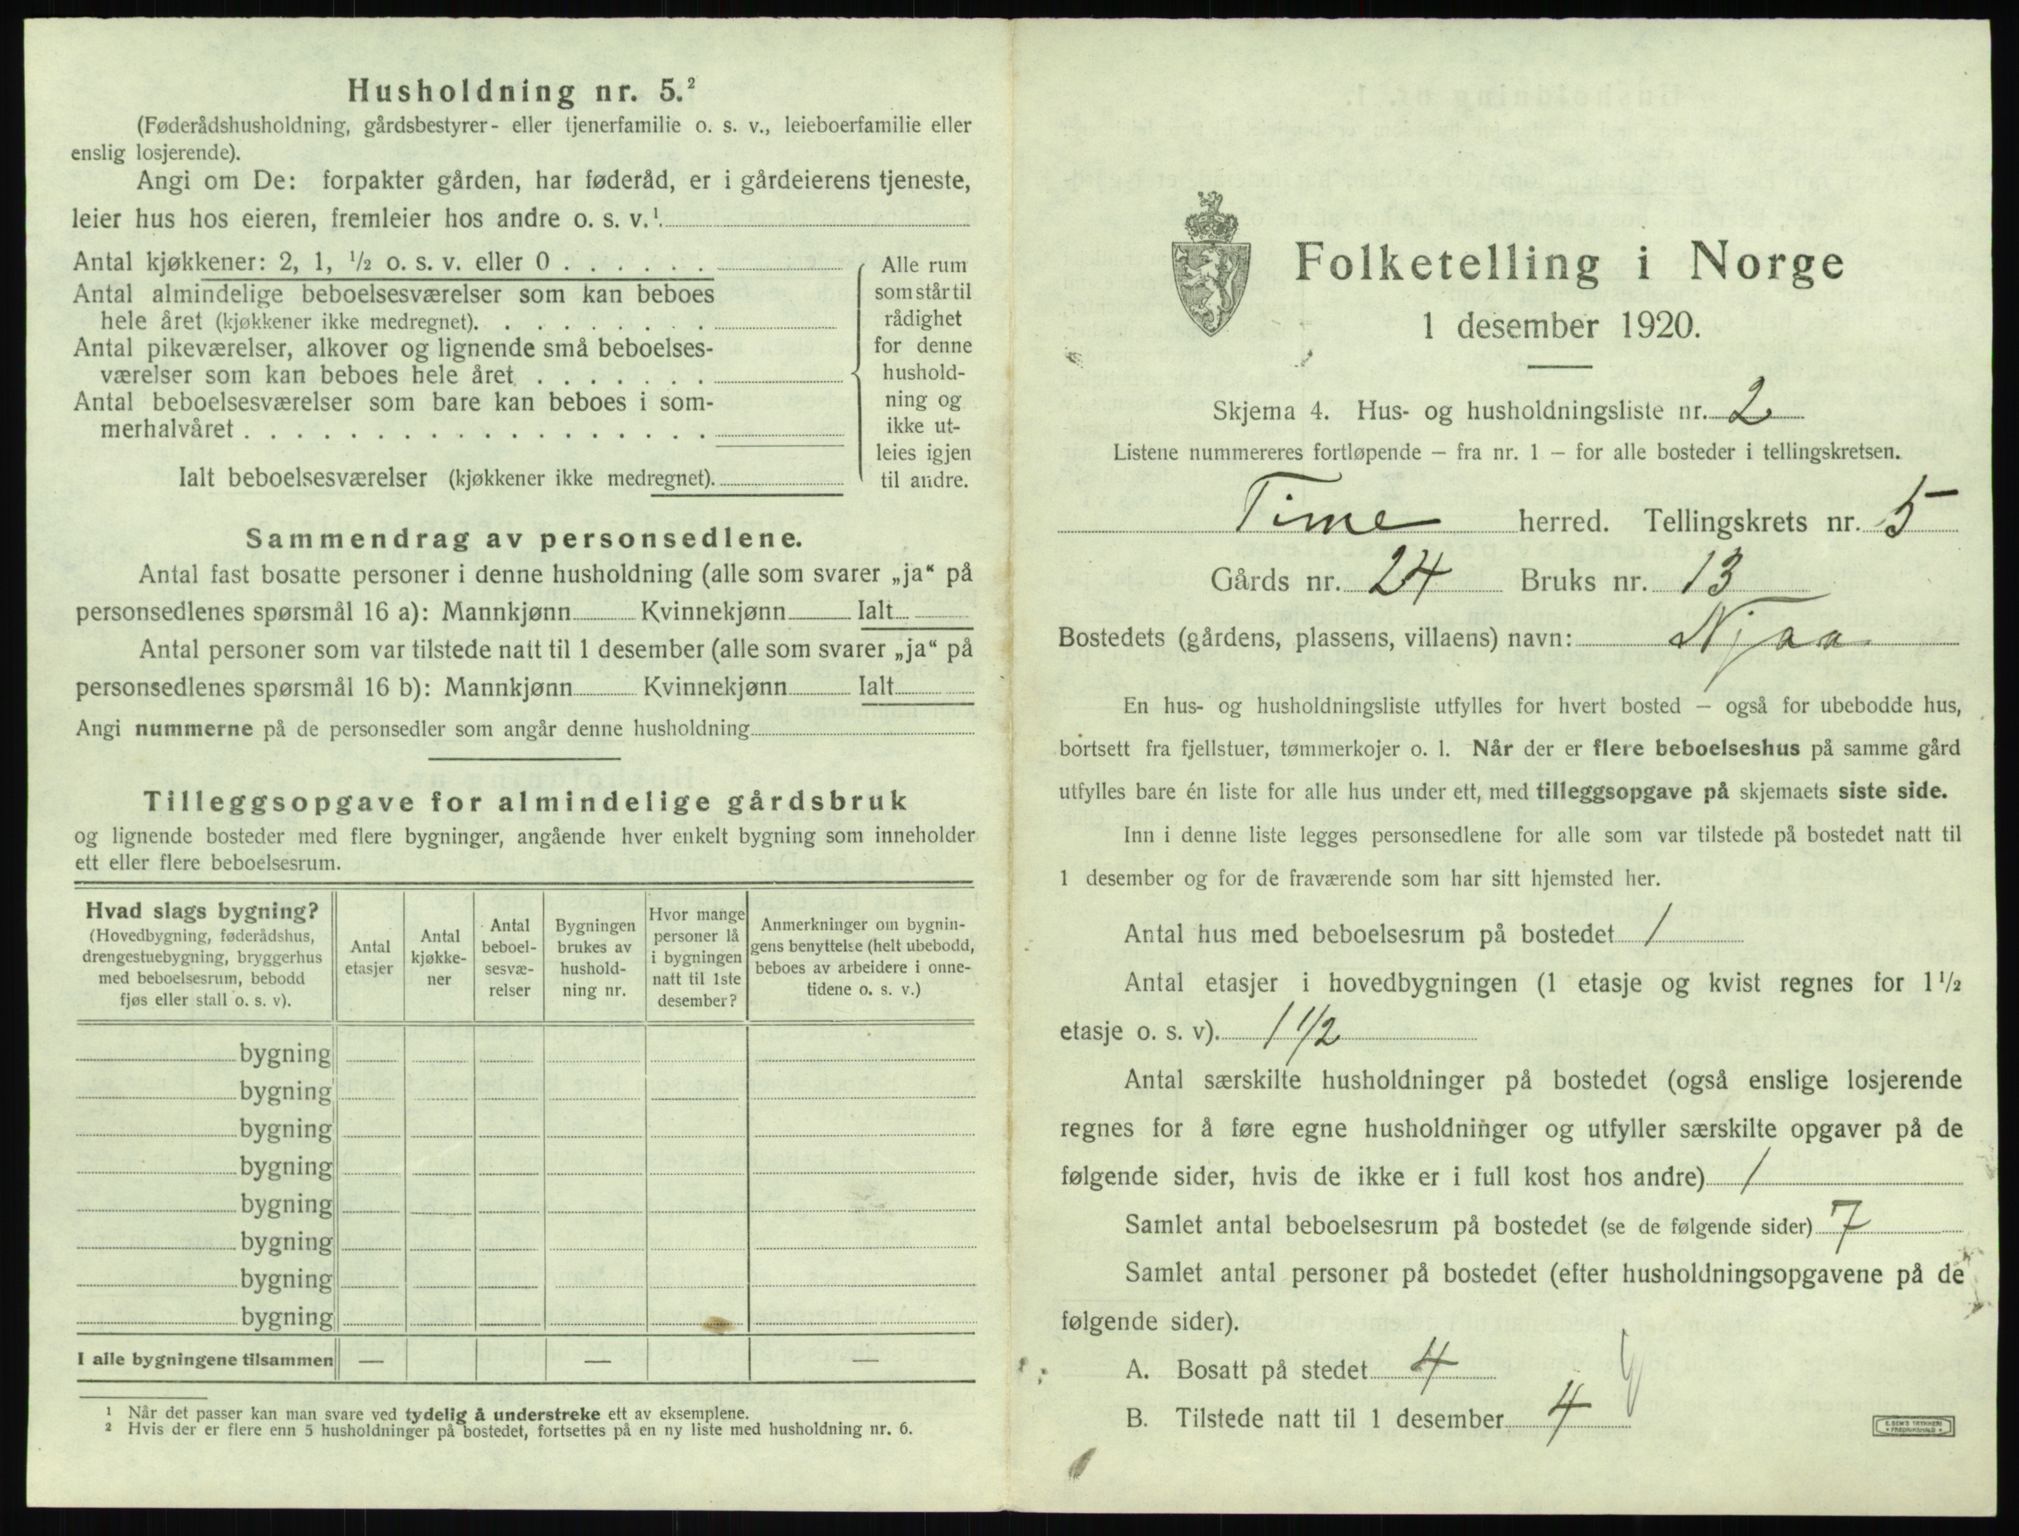 Husholdning nr. 5.²
(Føderådshusholdning, gårdsbestyrer- eller tjenerfamilie o. s. v., leieboerfamilie eller
enslig losjerende).
Angi om De: forpakter gården, har føderåd, er i gårdeierens tjeneste,
leier hus hos eieren, fremleier hos andre o. s. v.¹.
Antal kjøkkener: 2, 1, ½ o. s. v. eller 0 . . . . . .
Antal almindelige beboelsesværelser som kan beboes
hele året (kjøkkener ikke medregnet). . . . . . . . .
Antal pikeværelser, alkover og lignende små beboelses-
værelser som kan beboes hele året . . . . . . .
Antal beboelsesværelser som bare kan beboes i som-
merhalvåret . . . . . . . . . . . . . . . . . .
Ialt beboelsesværelser (kjøkkener ikke medregnet).
Alle rum
som står til
rådighet
for denne
hushold-
ning og
ikke ut-
leies igjen
til andre.
Sammendrag av personsedlene.
Antal fast bosatte personer i denne husholdning (alle som svarer „ja“ på
personsedlenes spørsmål 16 a): Mannkjønn Kvinnekjønn Ialt
Antal personer som var tilstede natt til 1 desember (alle som svarer „ja“ på
personsedlenes spørsmål 16 b): Mannkjønn Kvinnekjønn Ialt
Angi nummerne på de personsedler som angår denne husholdning
Tilleggsopgave for almindelige gårdsbruk
og lignende bosteder med flere bygninger, angående hver enkelt bygning som inneholder
ett eller flere beboelsesrum.
Hvad slags bygning?
(Hovedbygning, føderådshus,
drengestuebygning, bryggerhus
med beboelsesrum, bebodd
fjøs eller stall o. s. v).
Antal
etasjer
Antal
kjøkke-
ner
Antal
beboel-
sesvæ-
relser
Bygningen
brukes av
hushold-
ning nr.
Hvor mange
personer lå
i bygningen
natt til 1ste
desember?
Anmerkninger om bygnin-
gens benyttelse (helt ubebodd,
beboes av arbeidere i onne-
tidene o. s. v.)
bygning
bygning
bygning
bygning
bygning
bygning
bygning
bygning
I alle bygningene tilsammen — — —
¹ Når det passer kan man svare ved tydelig å understreke ett av eksemplene.
² Hvis der er flere enn 5 husholdninger på bostedet, fortsettes på en ny liste med husholdning nr. 6.
Folketelling i Norge
1 desember 1920.
Skjema 4. Hus- og husholdningsliste nr. 2
Listene nummereres fortløpende – fra nr. 1 – for alle bosteder i tellingskretsen.
Time herred. Tellingskrets nr. 5
Gårds nr. 24 Bruks nr. 13
Bostedets (gårdens, plassens, villaens) navn: Njaa
En hus- og husholdningsliste utfylles for hvert bosted – også for ubebodde hus,
bortsett fra fjellstuer, tømmerkojer o. l. Når der er flere beboelseshus på samme gård
utfylles bare én liste for alle hus under ett, med tilleggsopgave på skjemaets siste side.
Inn i denne liste legges personsedlene for alle som var tilstede på bostedet natt til
1 desember og for de fraværende som har sitt hjemsted her.
Antal hus med beboelsesrum på bostedet 1
Antal etasjer i hovedbygningen (1 etasje og kvist regnes for 1½
etasje o. s. v). 1 1/2
Antal særskilte husholdninger på bostedet (også enslige losjerende
regnes for å føre egne husholdninger og utfyller særskilte opgaver på de
følgende sider, hvis de ikke er i full kost hos andre) 1
Samlet antal beboelsesrum på bostedet (se de følgende sider) 7
Samlet antal personer på bostedet (efter husholdningsopgavene på de
følgende sider).
A. Bosatt på stedet 4
B. Tilstede natt til 1 desember 4